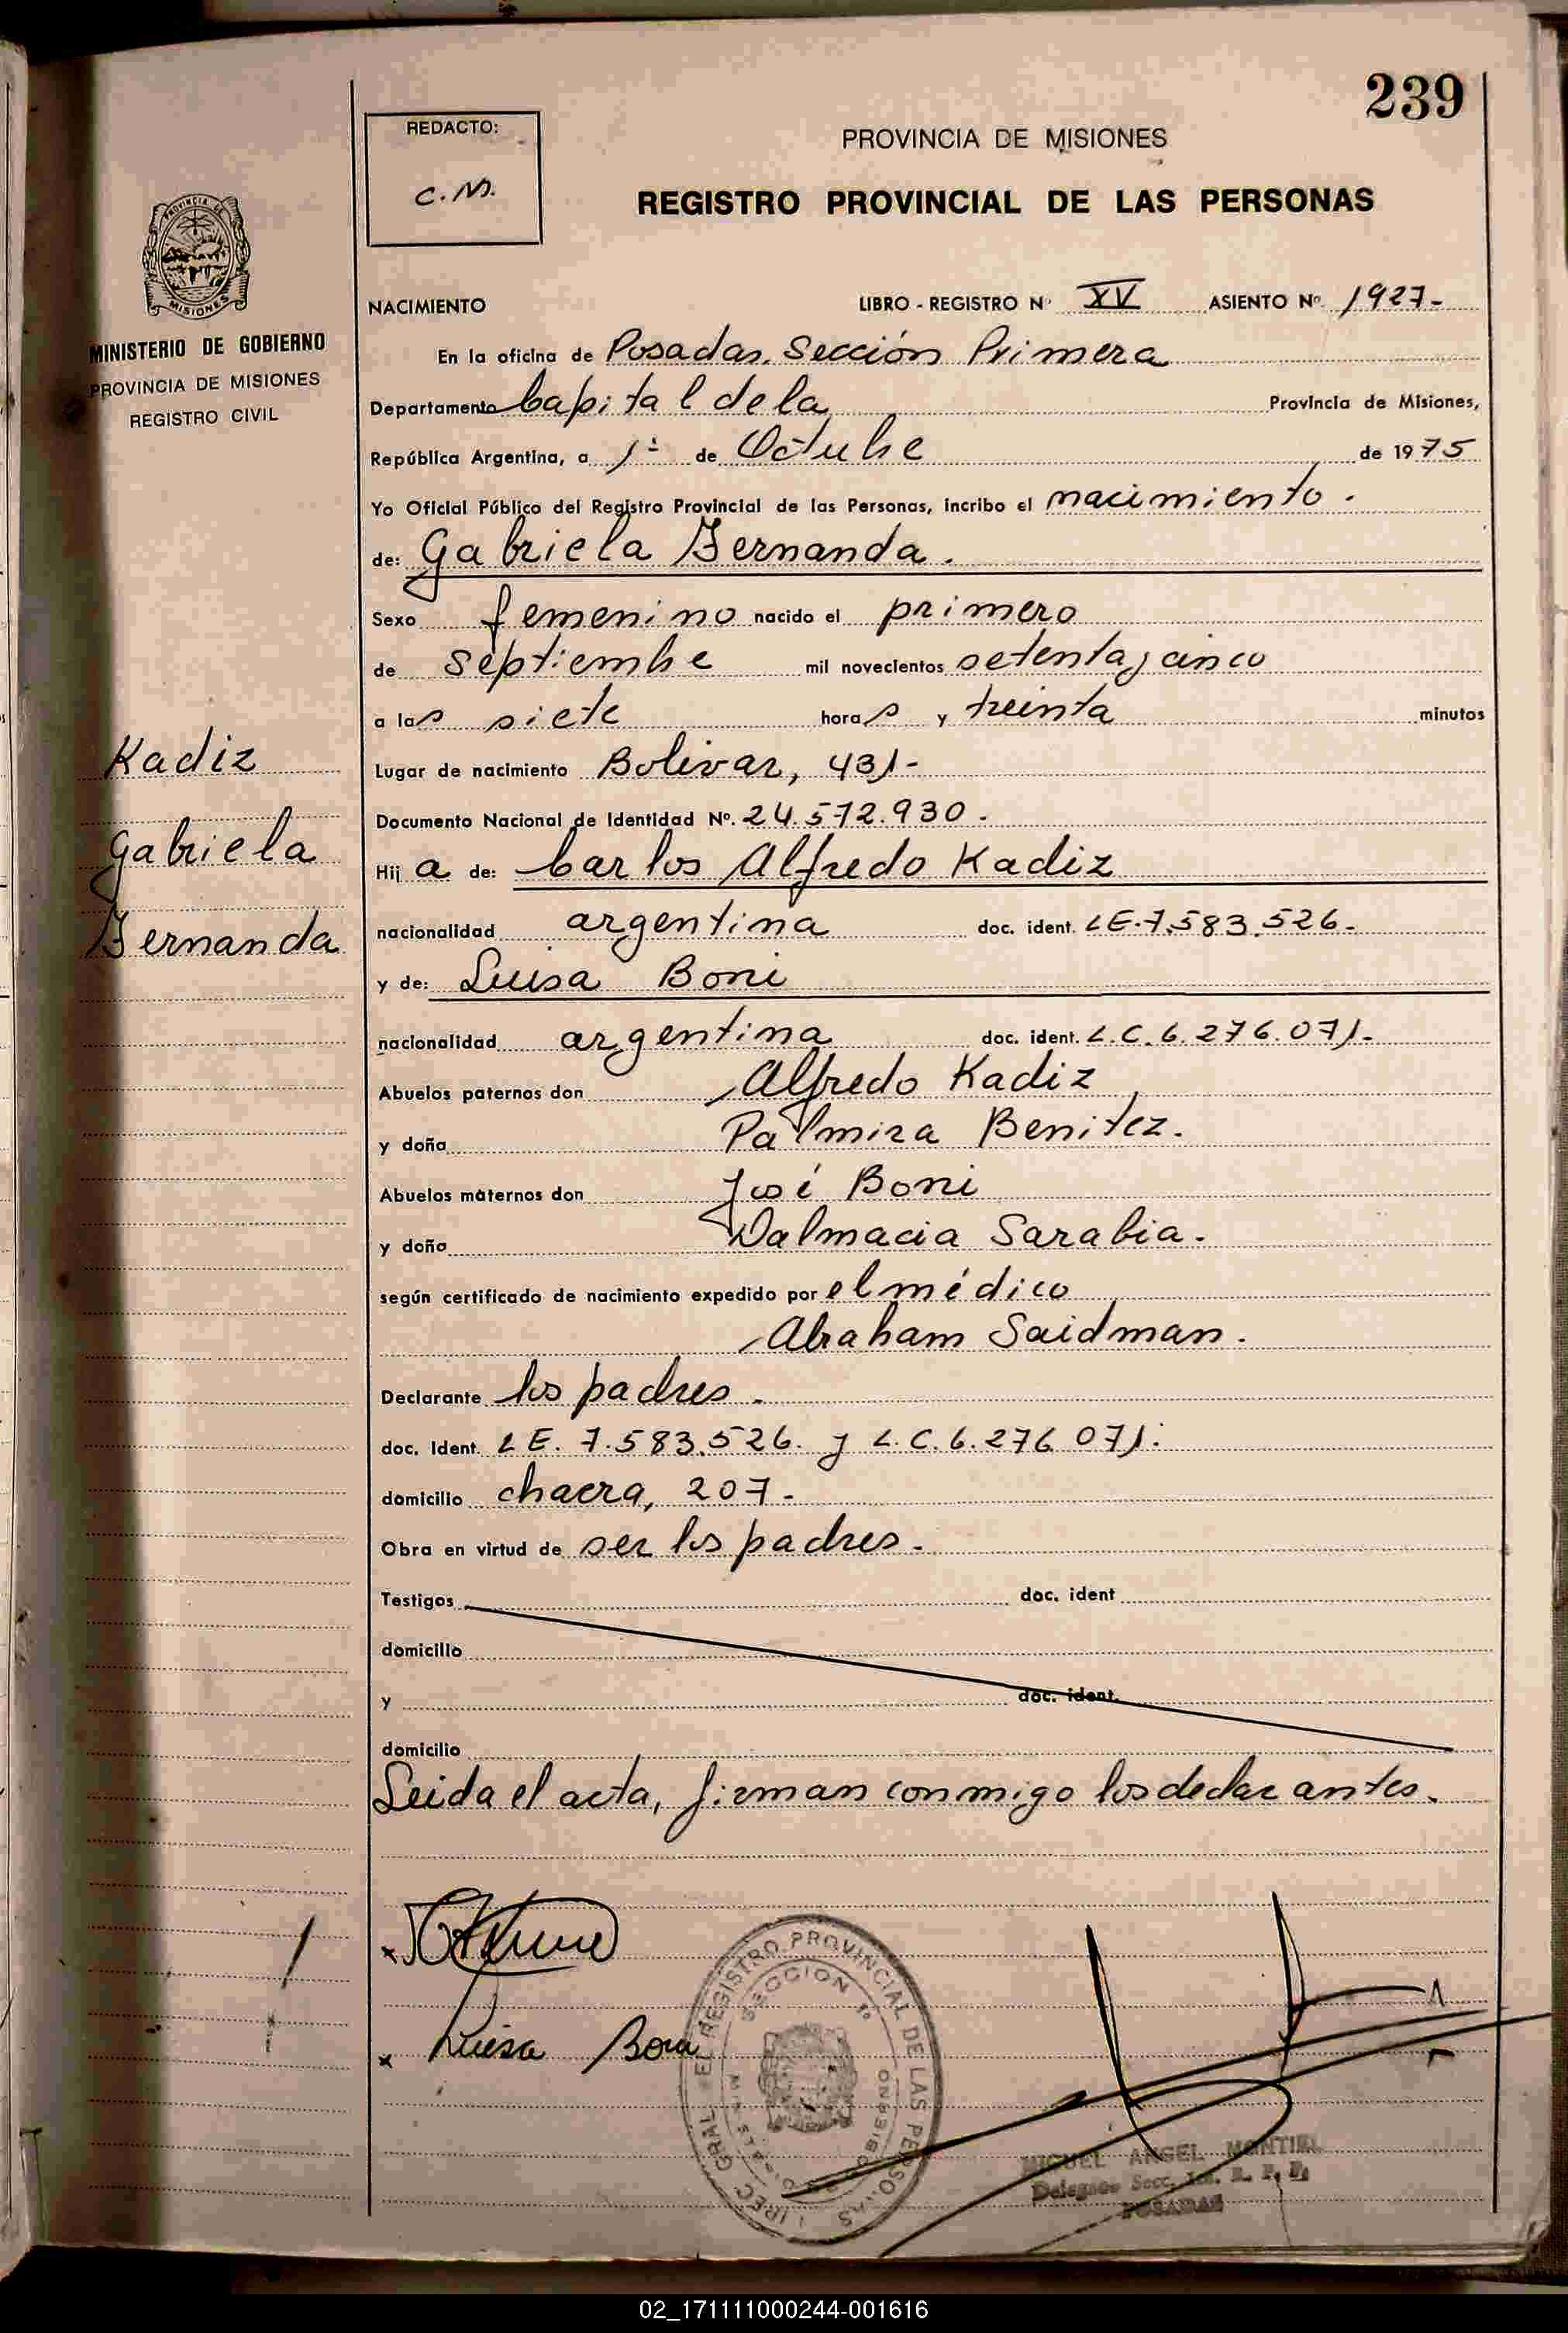 239
REDACTO:
C.M.
PROVINCIA DE MISIONES
REGISTRO PROVINCIAL DE LAS PERSONAS
PROVINCIA DE
MISIONES
MINISTERIO DE GOBIERNO
PROVINCIA DE MISIONES
REGISTRO CIVIL
NACIMIENTO LIBRO - REGISTRO Nº XV ASIENTO Nº 1927-
En la oficina de Posadas. Sección Primera
Departamento Capital de la Provincia de Misiones,
República Argentina, a 1º de Octubre de 1975
Yo Oficial Público del Registro Provincial de las Personas, incribo el nacimiento.
de: Gabriela Fernanda.
Sexo femenino nacido el primero
de septiembre mil novecientos setenta y cinco
a las siete horas y treinta minutos
Lugar de nacimiento Bolivar, 431-
Documento Nacional de Identidad Nº. 24.572.930.
Hij a de: Carlos Alfredo Kadiz
nacionalidad argentina doc. ident. LE.7.583.526-
y de: Luisa Boni
nacionalidad argentina doc. ident. L.C.6.276.071-
Abuelos paternos don Alfredo Kadiz
y doña Palmira Benitez.
Abuelos maternos don José Boni
y doña Dalmacia Sarabia.
según certificado de nacimiento expedido por el médico
Abraham Saidman.
Declarante los padres.
doc. Ident. LE. 7.583.526. y L.C.6.276.071.
domicilio chacra, 207-
Obra en virtud de ser los padres.
Testigos doc. ident
domicilio
y doc. ident.
domicilio
Leida el acta, firman conmigo los declarantes.
Kadiz
Gabriela
Fernanda
Luisa Boni
DIREC. GRAL. DEL REGISTRO PROVINCIAL DE LAS PERSONAS
SECCION 1ª
MIGUEL ANGEL MONTIEL
Delegado Secc. 1ra. R. P. P.
POSADAS
02_171111000244-001616